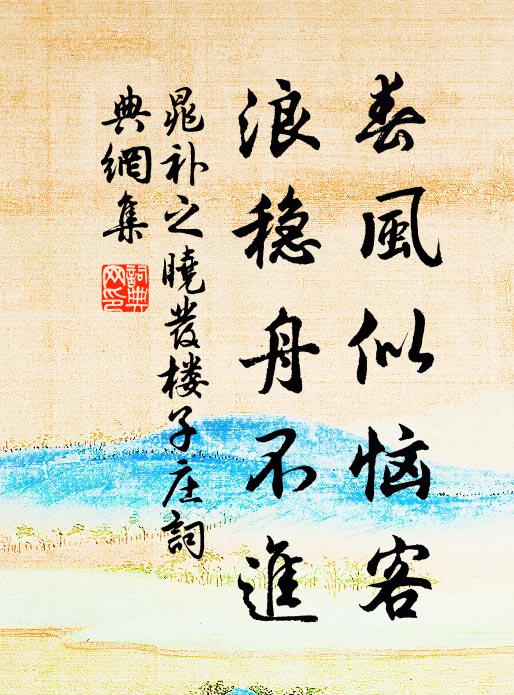 春風似恼客
浪穏舟不進
晁补之曉发楼子庄詞
典網集
詞典网印